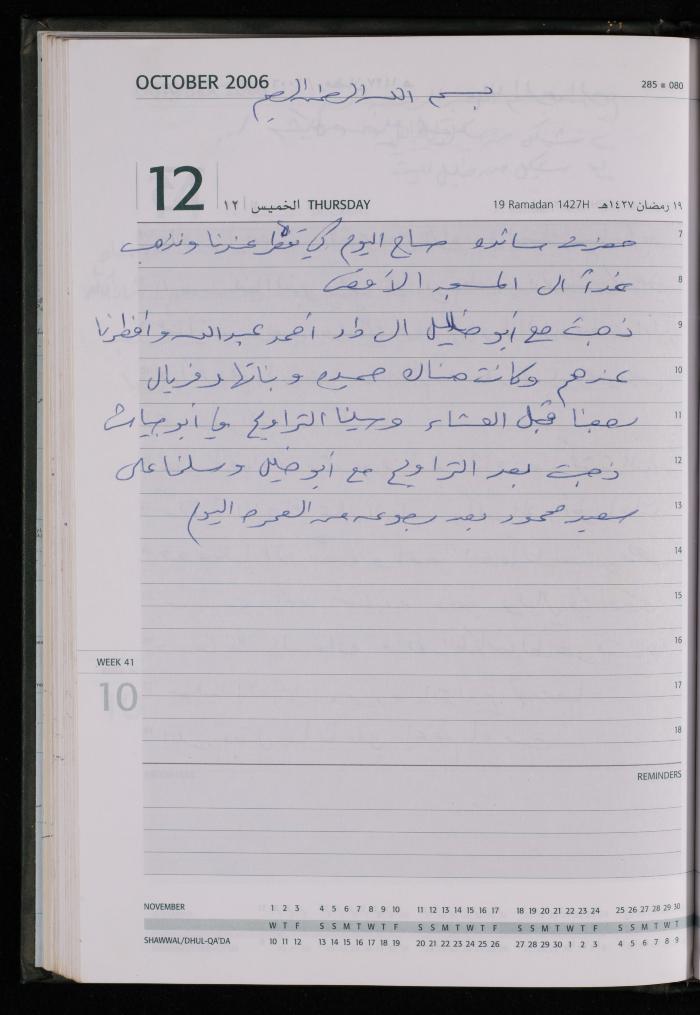 OCTOBER 2006
285 ■ 080
بسم الله الرحمن الرحيم
12
١٢ الخميس THURSDAY
19 Ramadan 1427H ١٩ رمضان ١٤٢٧هـ
7 حضرت سائده صباح اليوم كي تفطر عندنا ونذهب
8 غداً الى المسجد الأقصى
9 ذهبت مع أبو خليل الى دار أحمد عبدالله وأفطرنا
10 عندهم وكانت هناك حميده وبناتها وفريال
11 رجعنا قبل العشاء وصلينا التراويح في أبو جياش
12 ذهبت بعد التراويح مع أبو خليل وسلمنا على
13 سعيد محمود بعد رجوعه من العمره اليوم
14
15
16
WEEK 41
10
17
18
REMINDERS
NOVEMBER 1 2 3 4 5 6 7 8 9 10 11 12 13 14 15 16 17 18 19 20 21 22 23 24 25 26 27 28 29 30
W T F S S M T W T F S S M T W T F S S M T W T F S S M T W T
SHAWWAL/DHUL-QA'DA 10 11 12 13 14 15 16 17 18 19 20 21 22 23 24 25 26 27 28 29 30 1 2 3 4 5 6 7 8 9